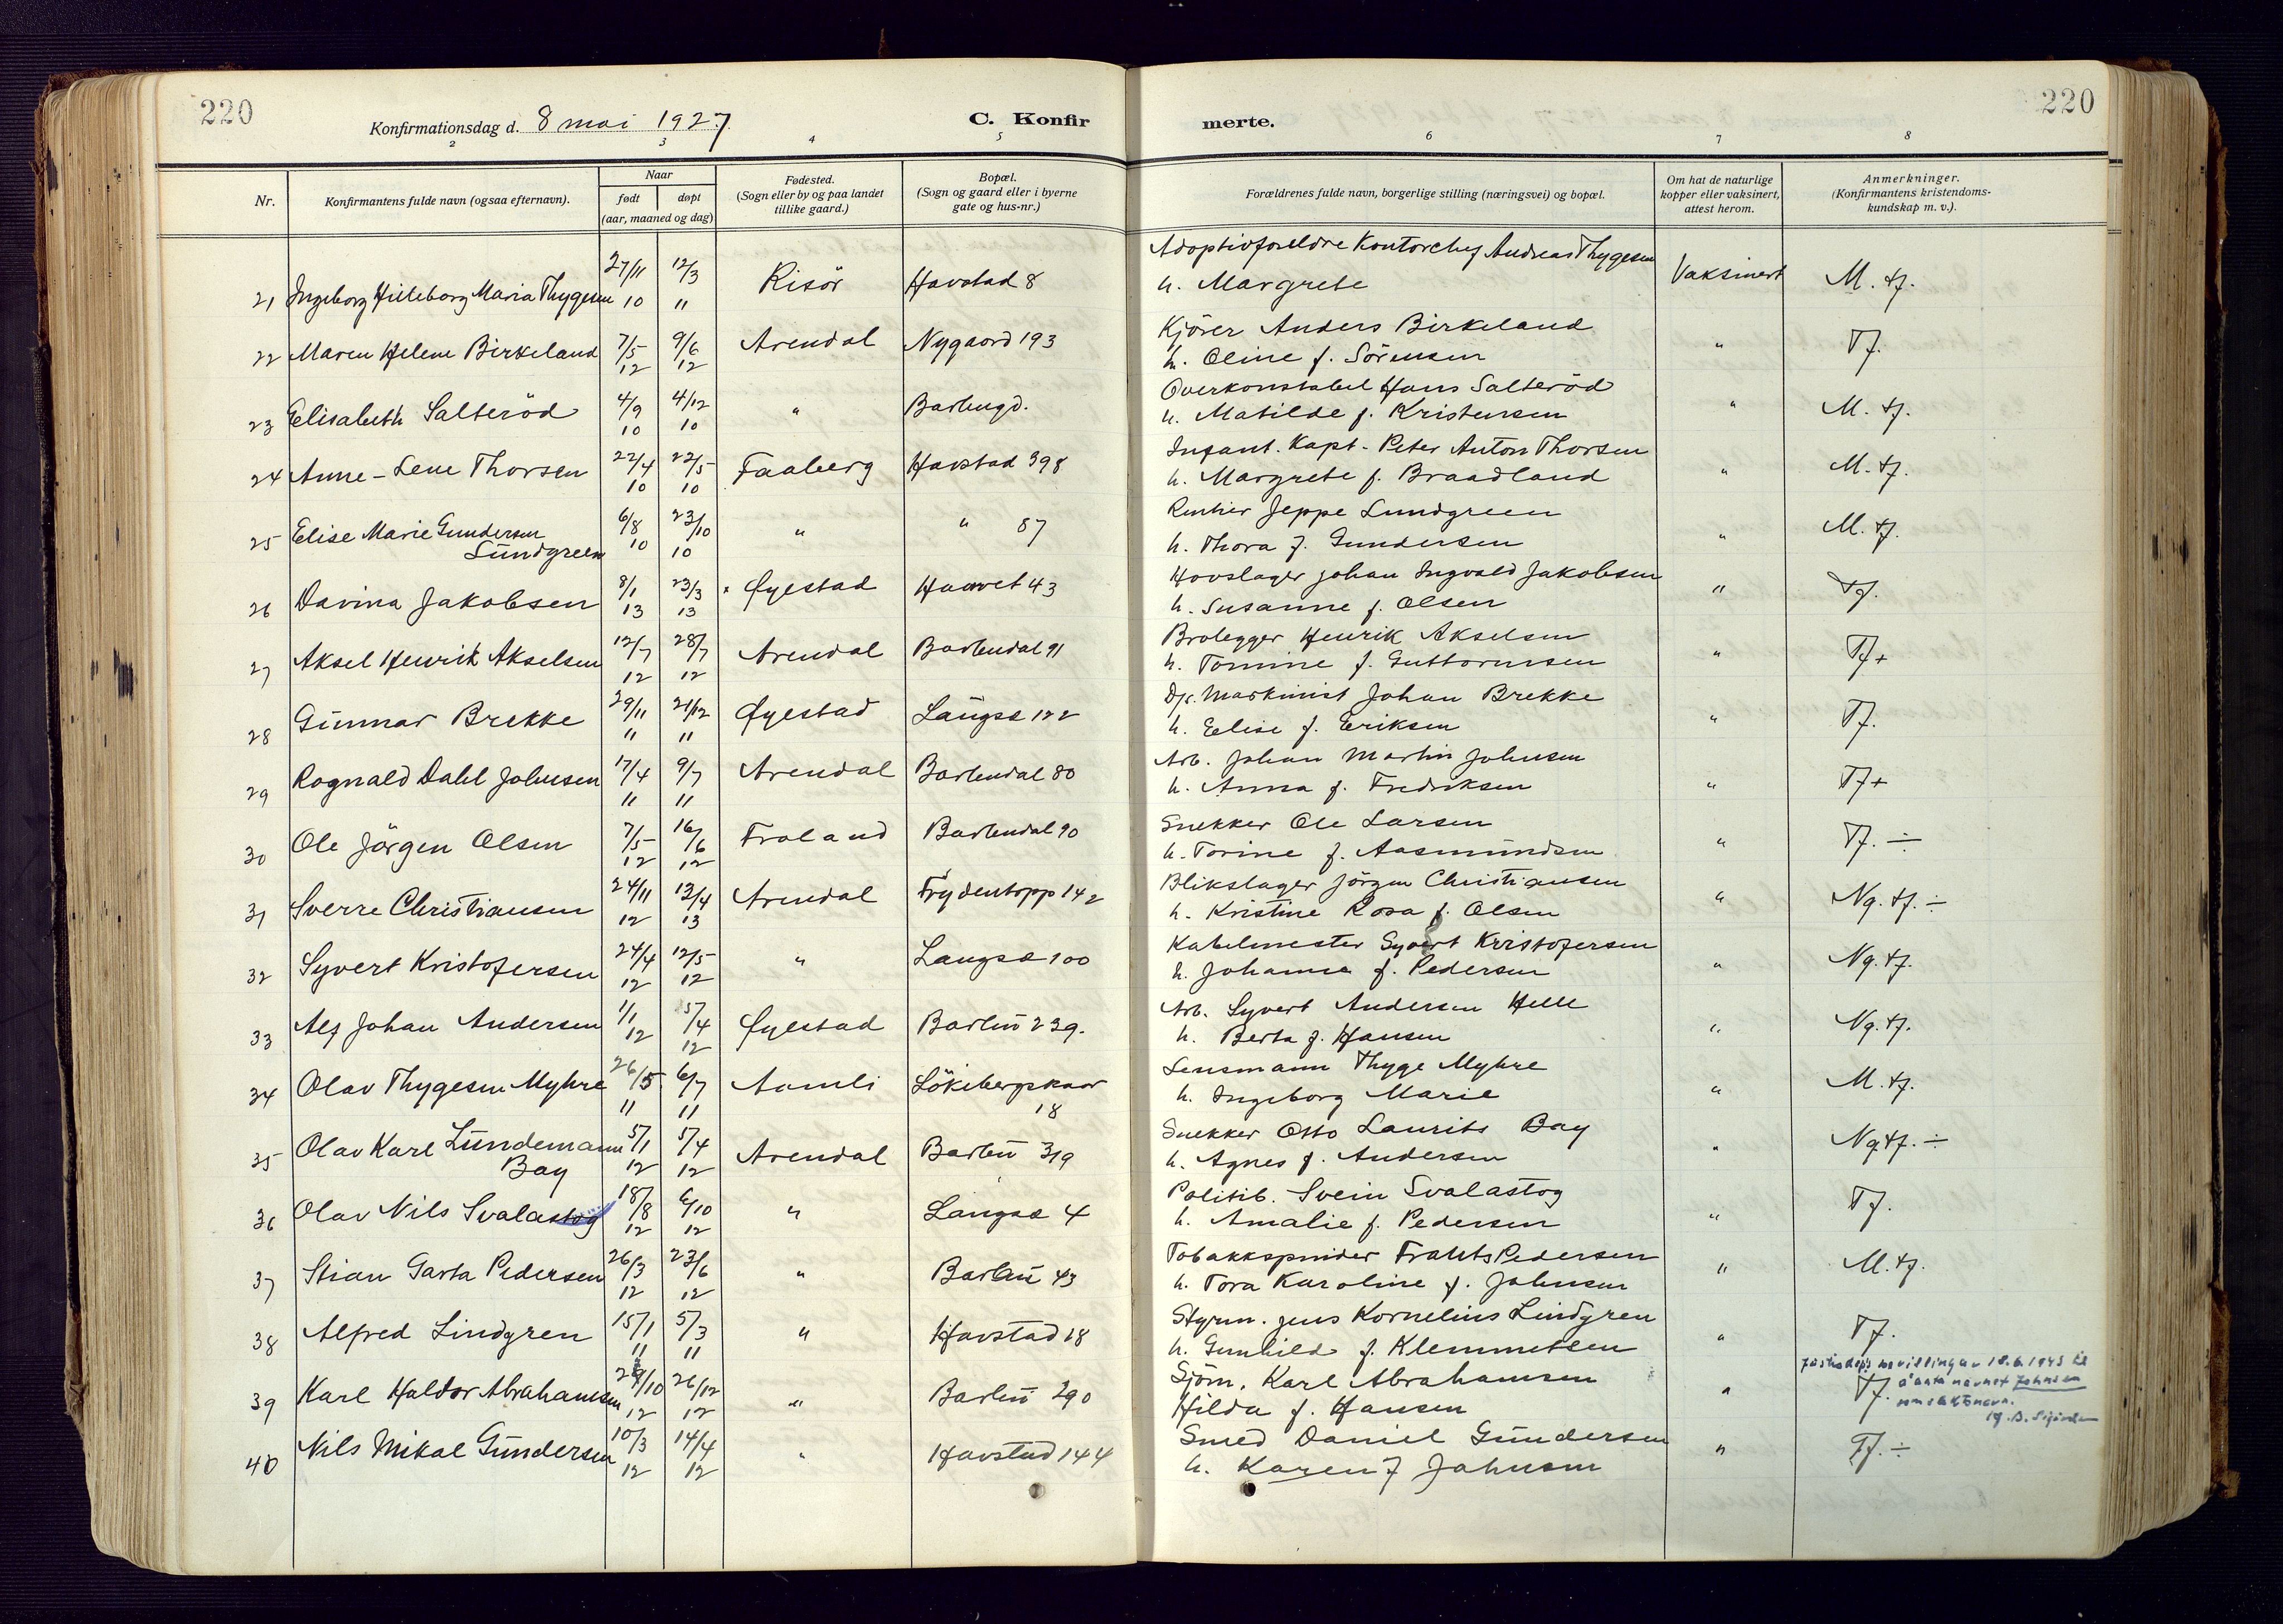 220
Konfirmationsdag d. 8 mai 1927.
C. Konfir
merte.
220
2 3 4 5 6 7 8
Nr.
Konfirmantens fulde navn (ogsaa efternavn).
Naar
født døpt
(aar, maaned og dag)
Fødested.
(Sogn eller by og paa landet
tillike gaard.)
Bopæl.
(Sogn og gaard eller i byerne
gate og hus-nr.)
Forældrenes fulde navn, borgerlige stilling (næringsvei) og bopæl.
Om hat de naturlige
kopper eller vaksinert,
attest herom.
Anmerkninger.
(Konfirmantens kristendoms-
kundskap m. v.).
21 Ingeborg Hilleborg Maria Thygesen 27/11 10 12/3 11 Risör Havstad 8 Adoptivforeldre Kontorchef Andreas Thygesen
h. Margrete Vaksinert M. tf.
22 Maren Helene Birkeland 7/5 12 9/6 12 Arendal Nygaard 193 Kjörer Anders Birkeland
h. Oline f. Sörensen " Tf.
23 Elisabeth Salteröd 4/9 10 4/12 10 " Barbugd. Overkonstabel Hans Salteröd
h. Matilde f. Kristensen " M. tf.
24 Anne-Lene Thorsen 22/4 10 22/5 10 Faaberg Havstad 398 Infant. Kapt. Peter Anton Thorsen
h. Margrete f. Braadland " M. tf.
25 Elise Marie Gundersen
Lundgreen 6/8 10 23/10 10 " " 87 Rentier Jeppe Lundgreen
h. Thora f. Gundersen " M. tf.
26 Davina Jakobsen 8/1 13 23/3 13 Øyestad Haavet 43 Hovslager Johan Ingvald Jakobsen
h. Susanne f. Olsen " Tf.
27 Aksel Henrik Akselsen 12/7 12 28/7 12 Arendal Barbudal 91 Brolegger Henrik Akselsen
h. Tomine f. Guttormsen " Tf+
28 Gunnar Brekke 29/11 11 21/12 11 Øyestad Langsæ 122 Maskinist Johan Brekke
h. Elise f. Eriksen " Tf.
29 Ragnald Dahl Johnsen 17/4 11 9/7 11 Arendal Barbudal 80 Arb. Johan Martin Johnsen
h. Anna f. Fredriksen " Tf+
30 Ole Jörgen Olsen 7/5 12 16/6 12 Froland Barbudal 90 Snekker Ole Larsen
h. Torine f. Aasmundsen " Tf. ÷
31 Sverre Christiansen 24/11 12 13/4 13 Arendal Frydentopp 142 Blikslager Jörgen Christiansen
h. Kristine Rosa f. Olsen " Ng. tf. ÷
32 Syvert Kristofersen 24/4 12 12/5 12 " Langsæ 100 Kabelmester Syvert Kristofersen
h. Johanna f. Pedersen " Ng. tf.
33 Alf Johan Andersen 1/1 12 5/4 12 Øyestad Barbu 239. Arb. Syvert Andersen Helle
h. Berta f. Hansen " Ng. tf.
34 Olav Thygesen Myhre 26/5 11 6/7 11 Aamli Lökebergskaar
18 Lensmann Thyge Myhre
h. Ingeborg Marie " M. tf.
35 Olav Karl Lundemann
Bay 5/1 12 5/4 12 Arendal Barbu 319 Snekker Otto Laurits Bay
h. Agnes f. Andersen " Ng tf. ÷
36 Olav Nils Svalastog 18/8 12 6/10 12 " Langsæ 4 Politib. Svein Svalastog
h. Amalie f. Pedersen " Tf.
37 Stian Garta Pedersen 26/3 12 23/6 12 " Barbu 43 Tobakkspinder Frants Pedersen
h. Tora Karoline f. Johnsen " M. tf.
38 Alfred Lindgren 15/1 11 5/3 11 " Havstad 18 Styrm. Jens Kornelius Lindgren
h. Gunhild f. Klemmetsen " Tf.
39 Karl Haldor Abrahamsen 29/10 12 26/12 12 " Barbu 290 Sjöm. Karl Abrahamsen
Hilda f. Hansen " Tf.
Justisdep's bevilling av 18.6.1943 til
å anta navnet Johnsen
som slektsnavn.
40 Nils Mikal Gundersen 10/3 12 14/4 12 " Havstad 144 Smed Daniel Gundersen
h. Karen f Johnsen " Tf. ÷